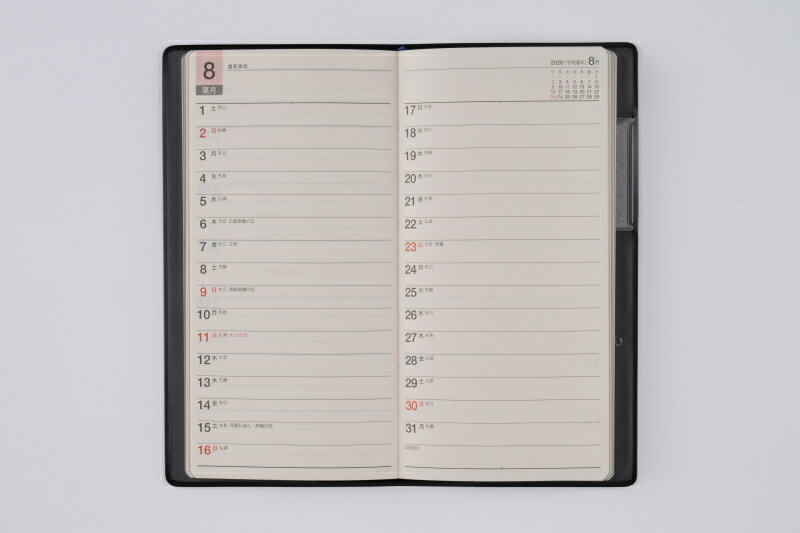 8
葉月
重要事項
1 土 赤口
2 日 先勝
3 月 友引
4 火 先負
5 水 仏滅
6 木 大安 広島原爆の日
7 金 赤口 立秋
8 土 先勝
9 日 友引 長崎原爆の日
10 月 先負
11 火 仏滅 山の日
12 水 大安
13 木 先勝
14 金 友引
15 土 先負 月遅れぼん・終戦の日
16 日 仏滅
2026[令和8年] 8月
日 月 火 水 木 金 土
1
2 3 4 5 6 7 8
9 10 11 12 13 14 15
16 17 18 19 20 21 22
23/30 24/31 25 26 27 28 29
17 月 大安
18 火 赤口
19 水 先勝
20 木 友引
21 金 先負
22 土 仏滅
23 日 大安 処暑
24 月 赤口
25 火 先勝
26 水 友引
27 木 先負
28 金 仏滅
29 土 大安
30 日 赤口
31 月 先勝
MEMO